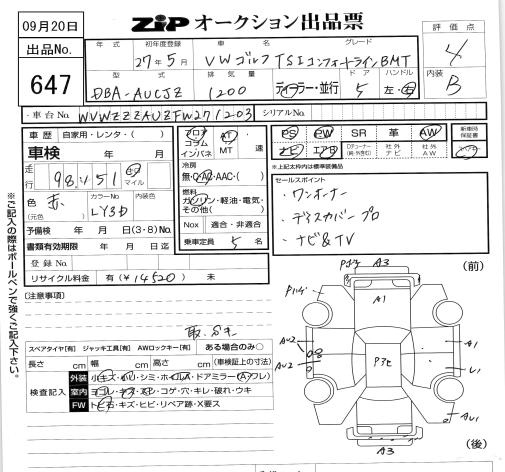 09月20日
ZiP オークション出品票
評価点
4
内装
B
出品No.
647
年式
初年度登録
27年5月
車名
グレード
VWゴルフTSIコンフォートラインBMT
型式
DBA-AUCJZ
排気量
1200
ディーラー・並行
ドア
5
ハンドル
左・右
車台No.
WVWZZZAUZFW271203
シリアルNo.
車歴
自家用・レンタ・( )
車検
年 月
走行
98,451
キロ
マイル
色
(元色)
赤
カラーNo
LY3D
予備検 年 月 日(3・8)No.
書類有効期限 年 月 日迄
登録No.
リサイクル料金 有(¥14520) 未
フロア
コラム
インパネ
AT
MT
速
冷房
無・C・AC・AAC・( )
燃料
ガソリン・軽油・電気・
その他( )
Nox 適合・非適合
乗車定員 5 名
PS
PW
SR
革
AW
ナビ
エアB
社外
ナビ
社外
AW
新車時
保証書
※上記太枠内は標準装備品
セールスポイント
・ワンオーナー
・ディスカバープロ
・ナビ&TV
※ご記入の際はボールペンで強くご記入下さい。
[注意事項]
取、
スペアタイヤ[有] ジャッキ工具[有] AWロックキー[有] ある場合のみ○
長さ cm 幅 cm 高さ cm (車検証上の寸法)
検査記入
外装
小キズ・小
・シミ・ホイルA・ドアミラー(A)ワレ)
室内
ヨゴレ・キズ・スレ・コゲ・穴・キレ・破れ・ウキ
FW
トビ石・キズ・ヒビ・リペア跡・X要ス
(前)
A3
A1
AU2
AU2
A1
AU1
A3
(後)